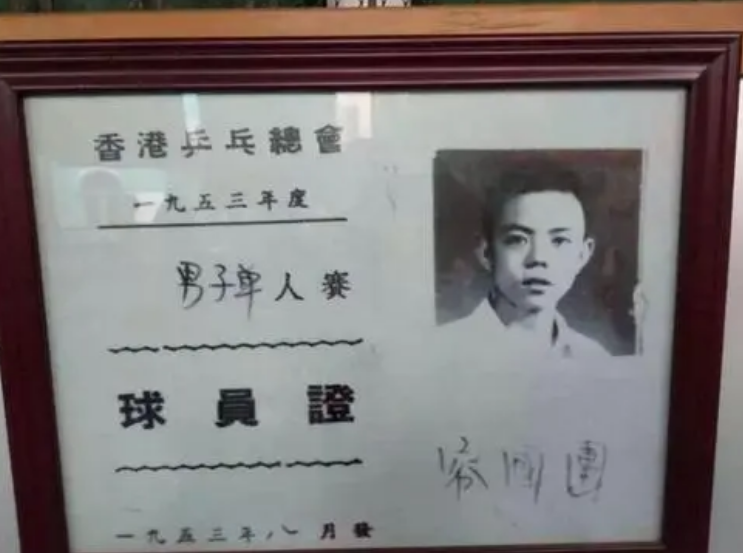 香港乒乓總會
一九五三年度
男子單人賽
球員證
容國團
一九五三年八月發